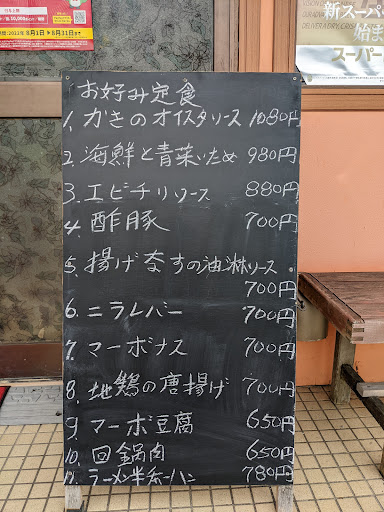 お好み定食
1. かきのオイスタソース 1080円
2. 海鮮と青菜いため 980円
3. エビチリソース 880円
4. 酢豚 700円
5. 揚げなすの油淋ソース
700円
6. ニラレバー 700円
7. マーボナス 700円
8. 地鶏の唐揚げ 700円
9. マーボ豆腐 650円
10. 回鍋肉 650円
11. ラーメン半チャーハン 780円
新スーパー
始ま
スーパー
8月1日 8月31日